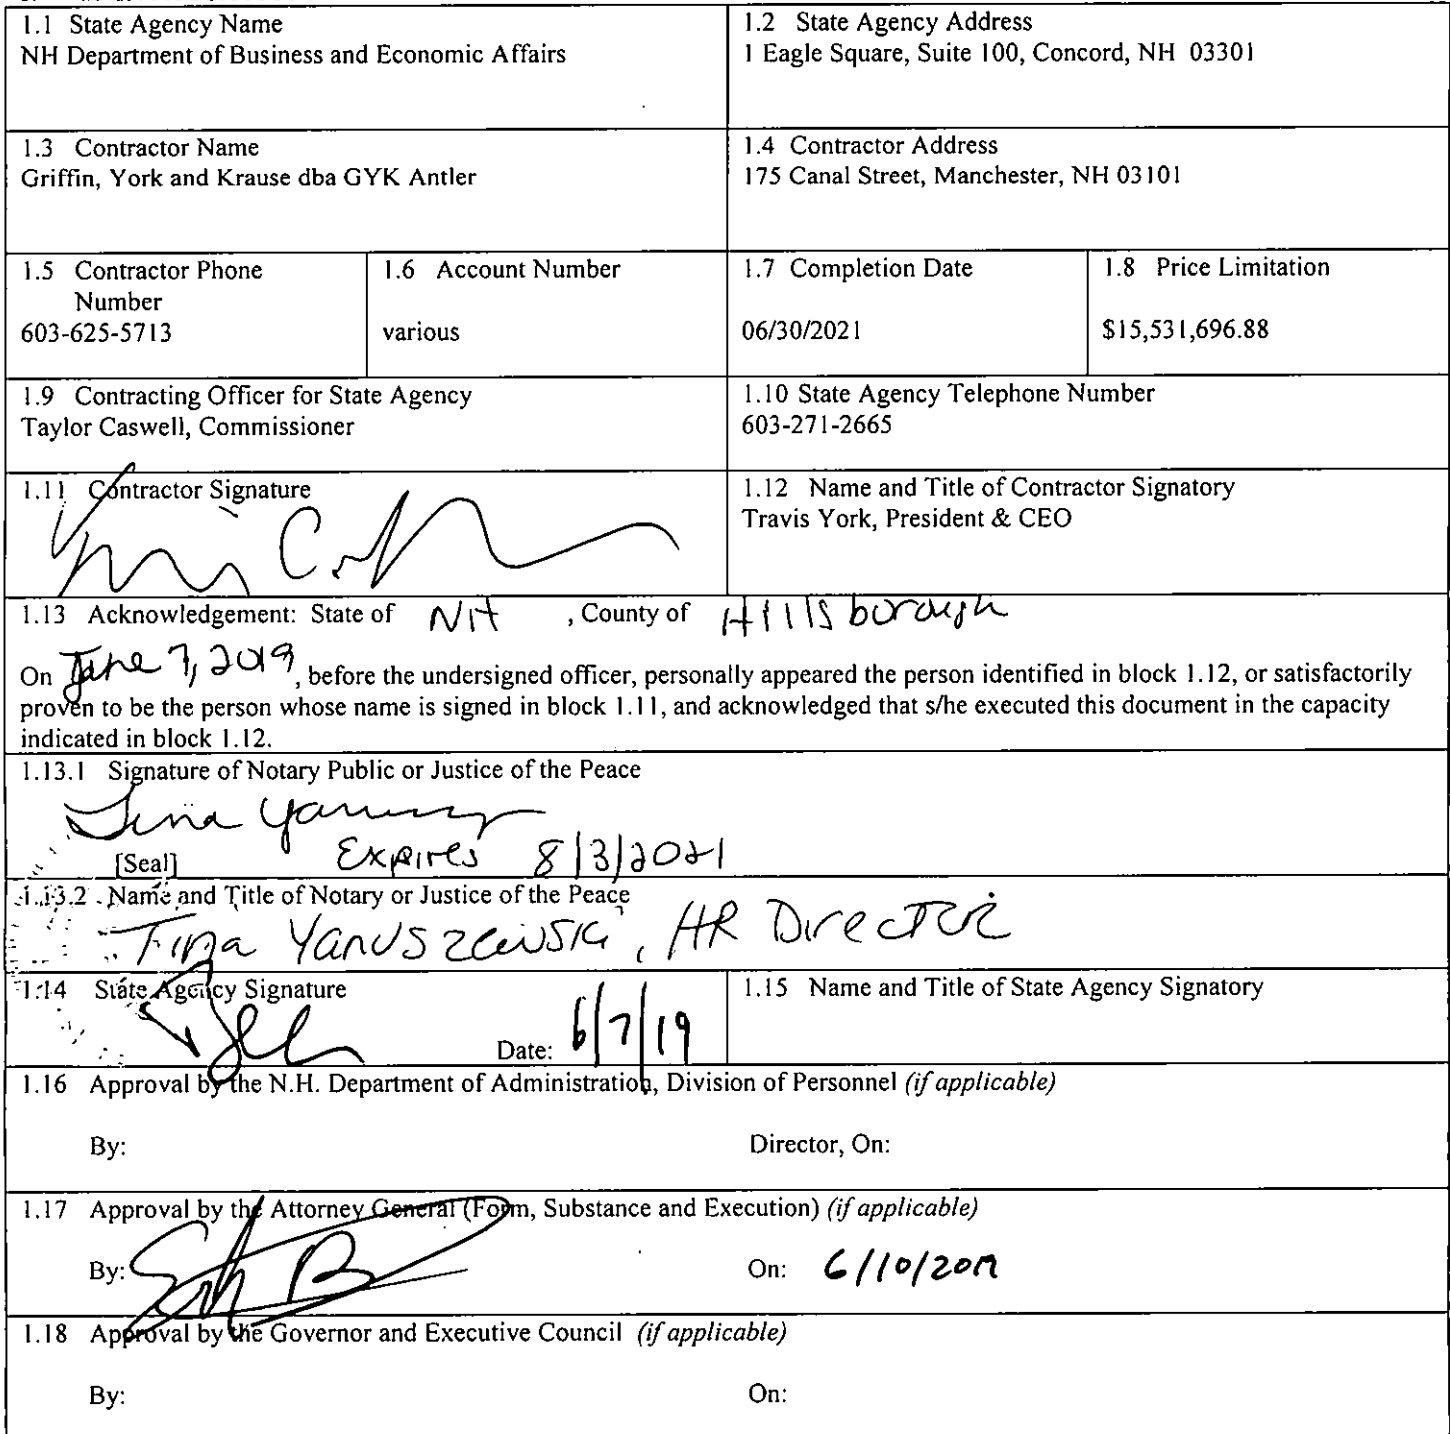 1.1 State Agency Name
NH Department of Business and Economic Affairs
1.2 State Agency Address
1 Eagle Square, Suite 100, Concord, NH 03301
1.3 Contractor Name
Griffin, York and Krause dba GYK Antler
1.4 Contractor Address
175 Canal Street, Manchester, NH 03101
1.5 Contractor Phone
Number
603-625-5713
1.6 Account Number
various
1.7 Completion Date
06/30/2021
1.8 Price Limitation
$15,531,696.88
1.9 Contracting Officer for State Agency
Taylor Caswell, Commissioner
1.10 State Agency Telephone Number
603-271-2665
1.11 Contractor Signature
1.12 Name and Title of Contractor Signatory
Travis York, President & CEO
1.13 Acknowledgement: State of NH , County of Hillsborough
On June 7, 2019, before the undersigned officer, personally appeared the person identified in block 1.12, or satisfactorily
proven to be the person whose name is signed in block 1.11, and acknowledged that s/he executed this document in the capacity
indicated in block 1.12.
1.13.1 Signature of Notary Public or Justice of the Peace
[Seal] Expires 8/3/2021
1.13.2 Name and Title of Notary or Justice of the Peace
Tina Yanuszewski, HR Director
1.14 State Agency Signature
Date: 6/7/19
1.15 Name and Title of State Agency Signatory
1.16 Approval by the N.H. Department of Administration, Division of Personnel (if applicable)
By: Director, On:
1.17 Approval by the Attorney General (Form, Substance and Execution) (if applicable)
By: On: 6/10/2019
1.18 Approval by the Governor and Executive Council (if applicable)
By: On: